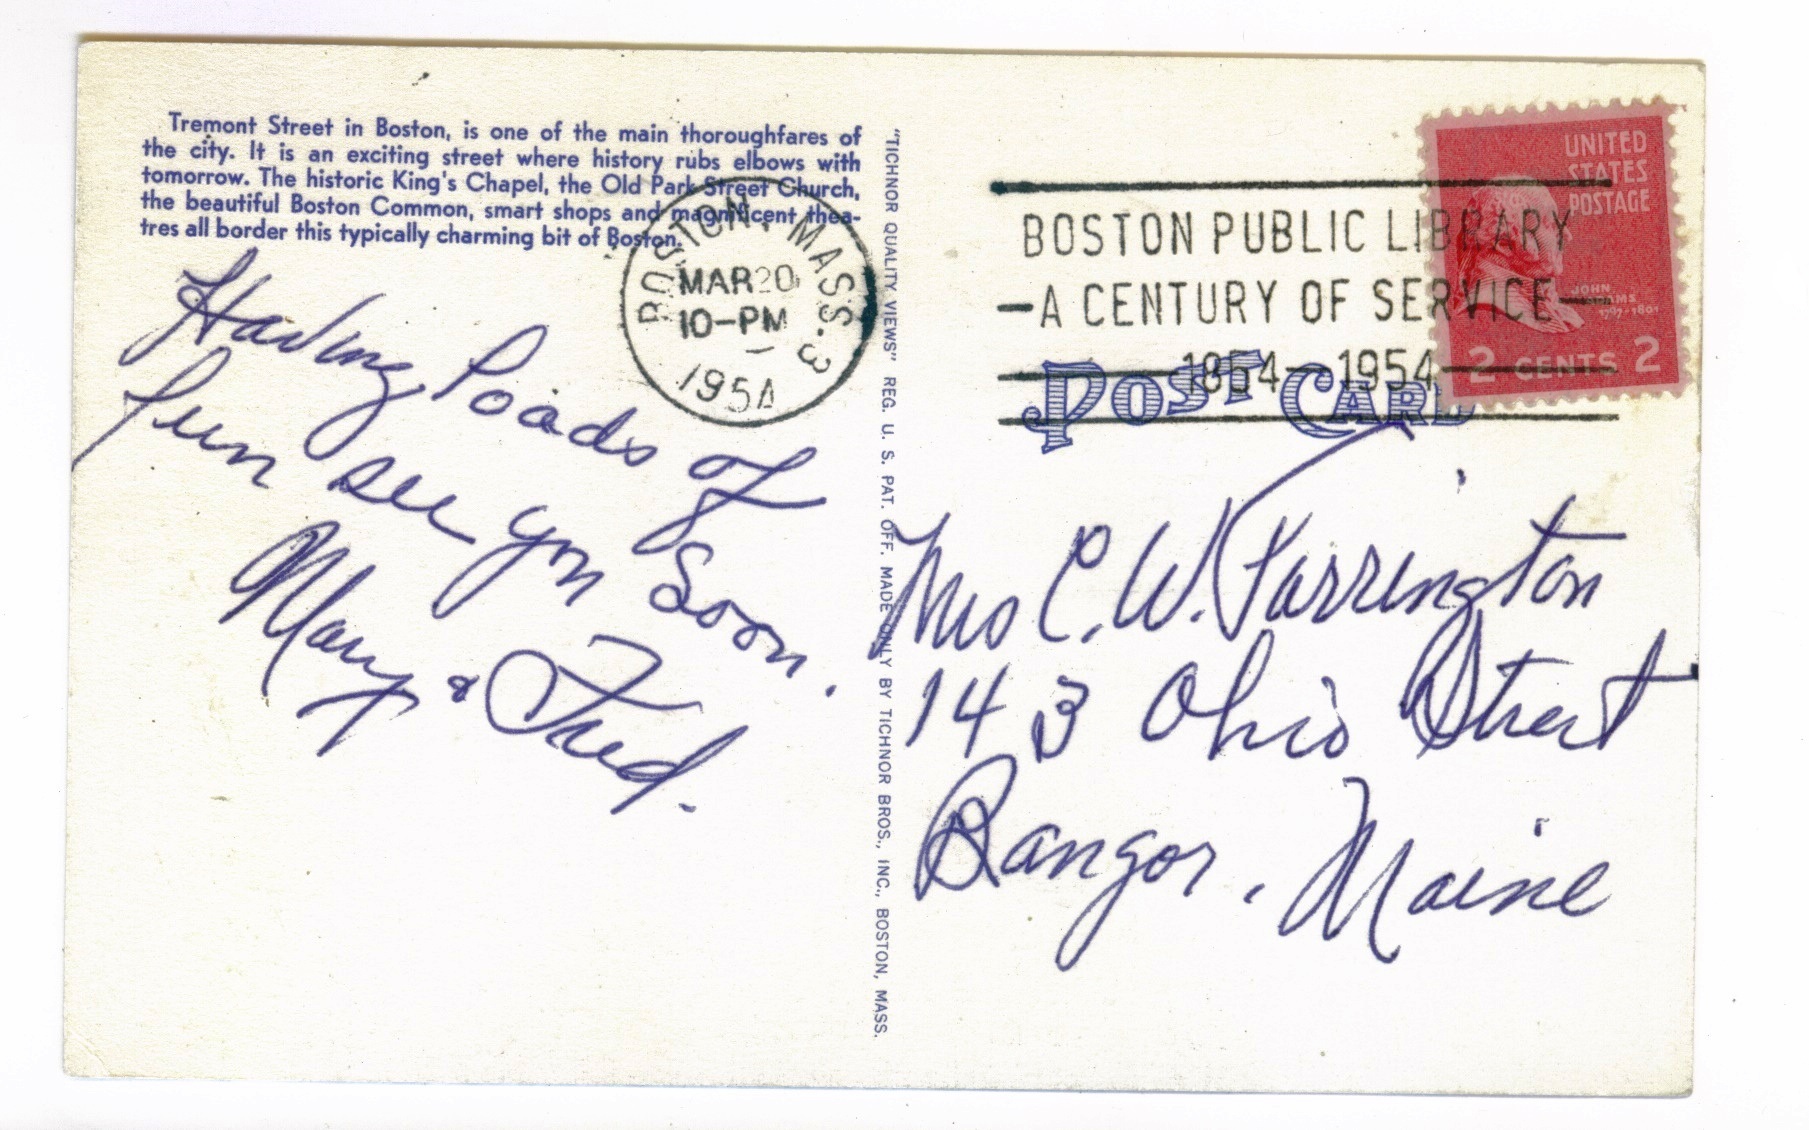 Tremont Street in Boston, is one of the main thoroughfares of
the city. It is an exciting street where history rubs elbows with
tomorrow. The historic King's Chapel, the Old Park Street Church,
the beautiful Boston Common, smart shops and magnificent thea-
tres all border this typically charming bit of Boston.
BOSTON, MASS. 3
MAR 20
10-PM
1954
Having loads of
fun see you soon.
Mary & Fred.
"TICHNOR QUALITY VIEWS" REG. U. S. PAT. OFF. MADE ONLY BY TICHNOR BROS., INC., BOSTON, MASS.
BOSTON PUBLIC LIBRARY
—A CENTURY OF SERVICE—
1854—1954
UNITED
STATES
POSTAGE
JOHN
ADAMS
1797-1801
2 CENTS 2
POST CARD
Mrs C. W. Farrington
143 Ohio Street
Bangor, Maine